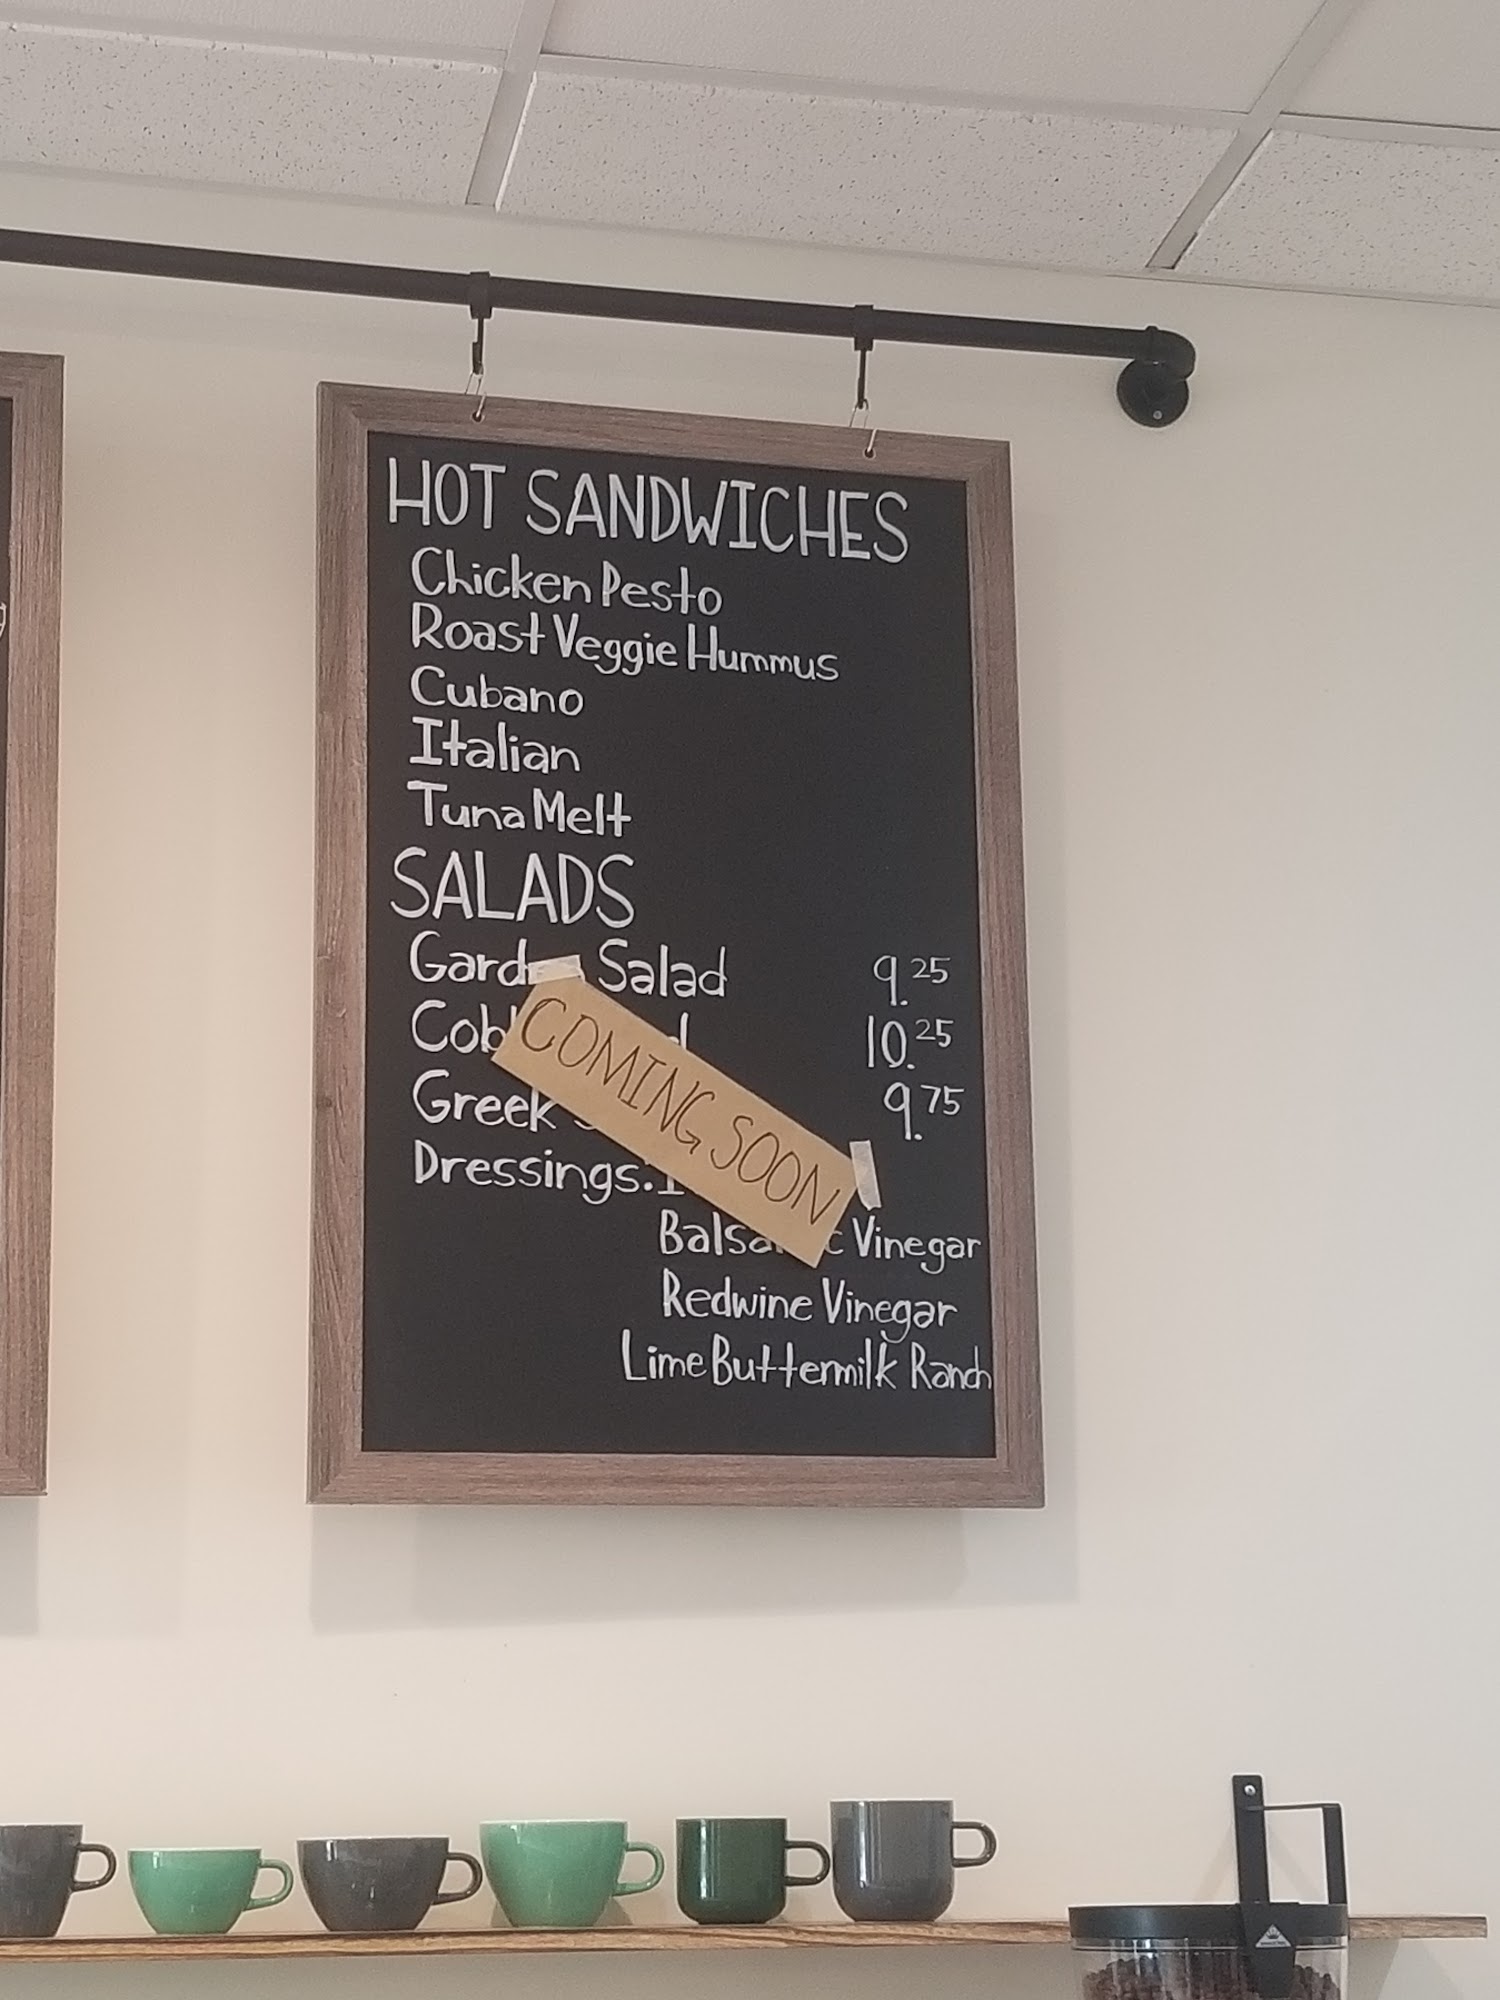 HOT SANDWICHES
Chicken Pesto
Roast Veggie Hummus
Cubano
Italian
Tuna Melt
SALADS
Garden Salad 9.25
10.25
Greek 9.75
COMING SOON
Dressings:
Balsamic Vinegar
Redwine Vinegar
Lime Buttermilk Ranch